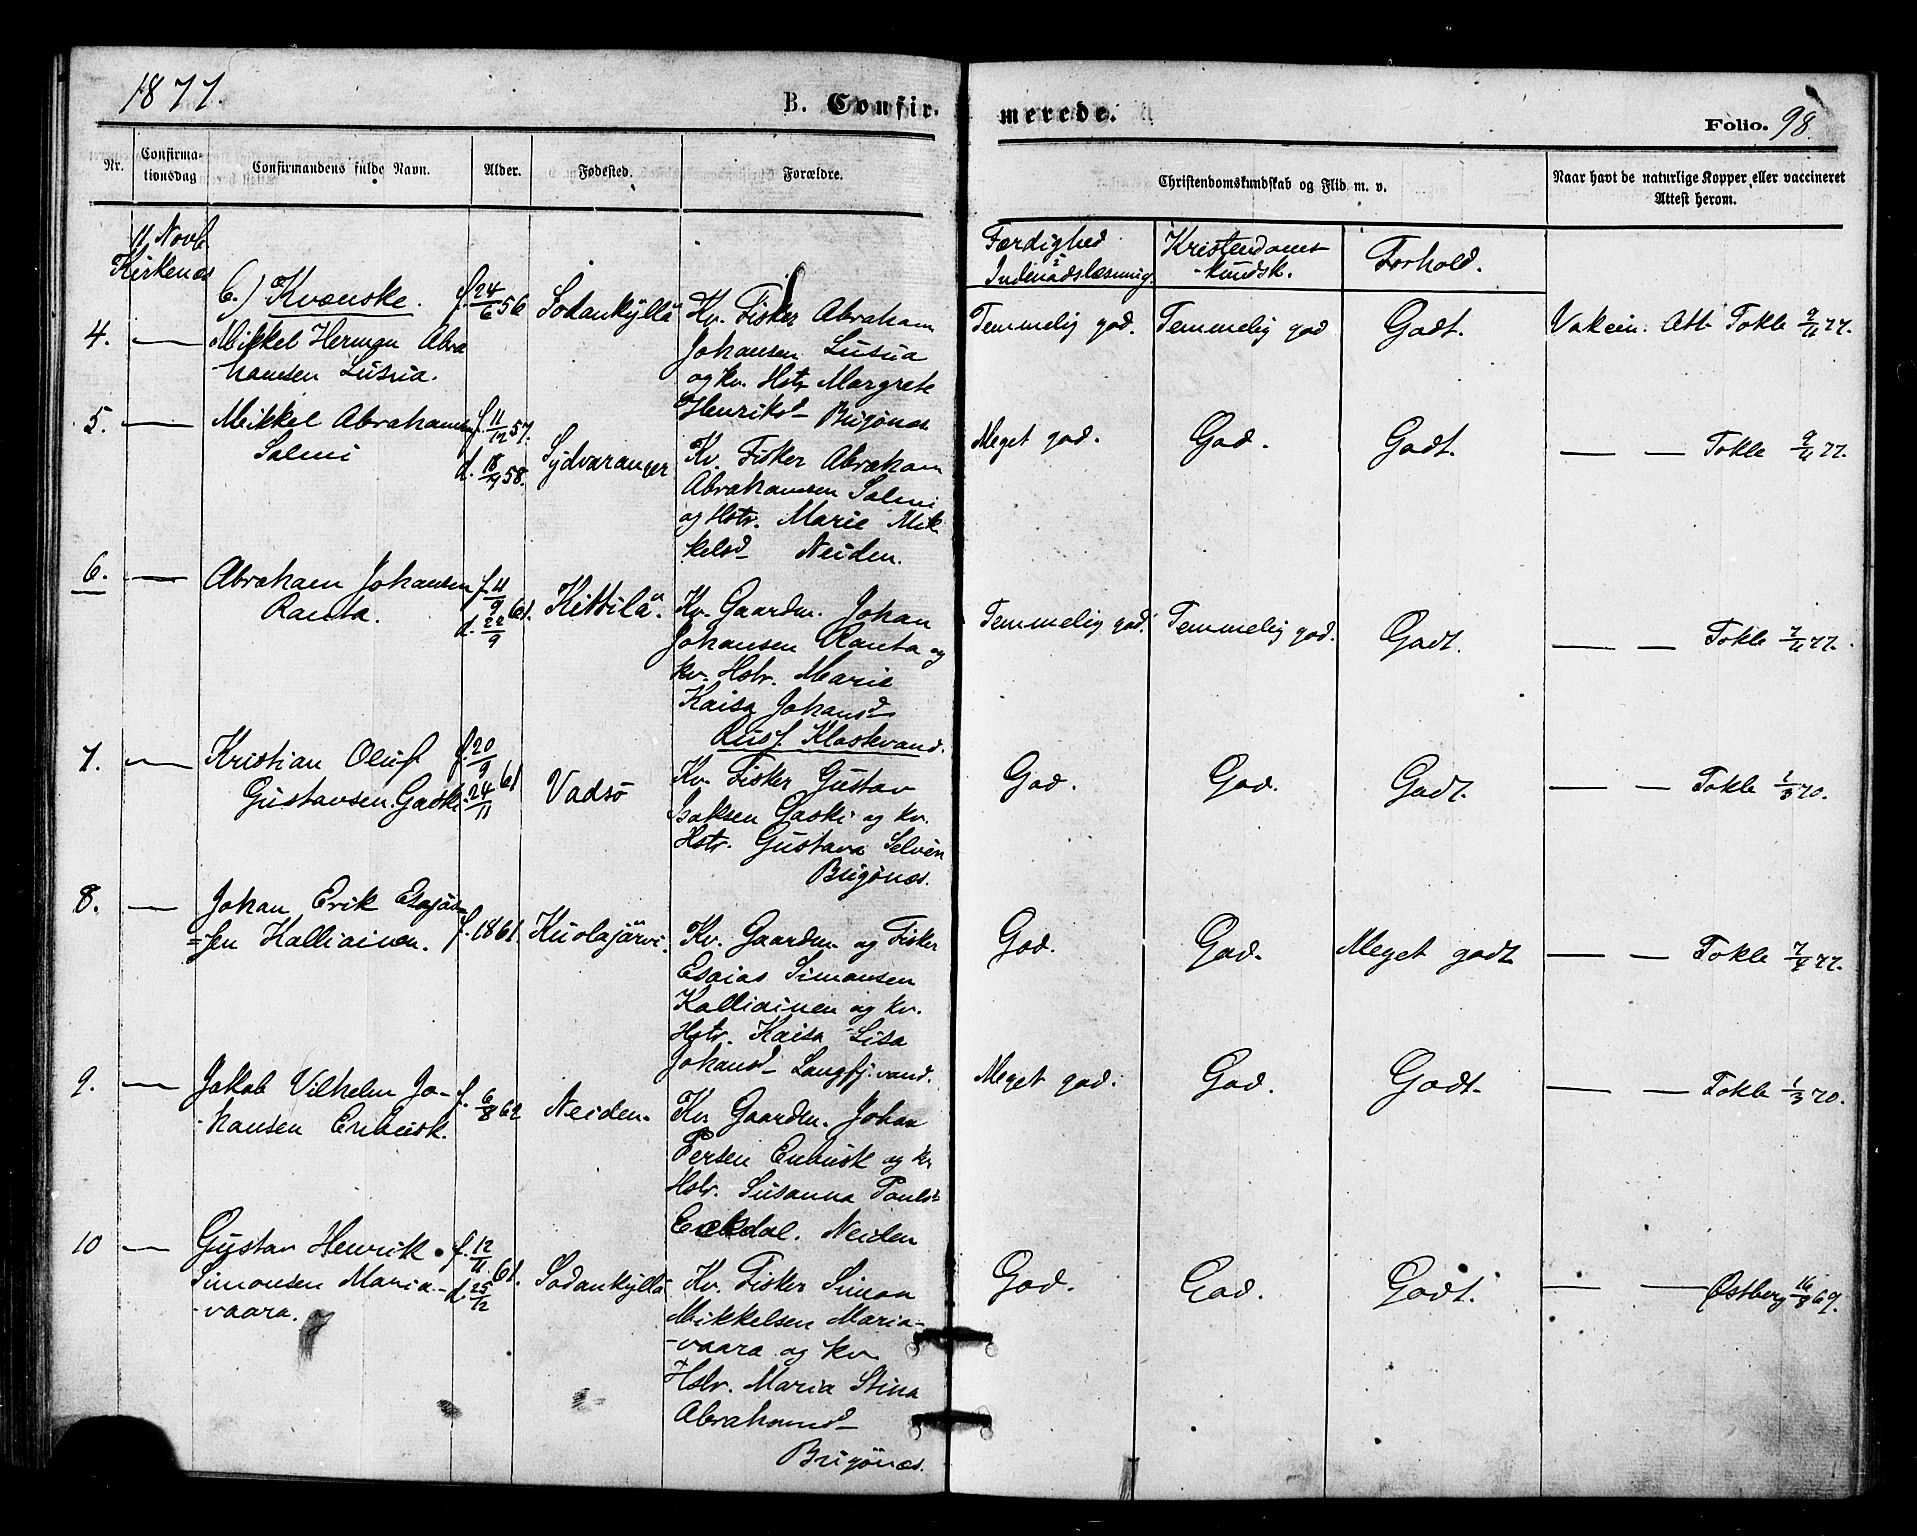 1877.
B. Confir-
merede.
Folio. 98.
Nr.
Confirma-
tionsdag
Confirmandens fulde Navn.
Alder.
Fødested.
Forældre.
Christendomskundskab og Flid m. v.
Naar havt de naturlige Kopper eller vaccineret
Attest herom.
11 Novb.
Kirkenes
Færdighed
i
Indenadslæsning.
Kristendoms-
kundsk.
Forhold.
6.) Kvænske.
4. — Mikkel Herman Abra
hamsen Lusua.
f. 24/6 56
Sodankylä
Kv. Fisker Abraham
Johansen Lusua
og kv. Hstr Margrete
Henriksd Bugønes
Temmelig god. Temmelig god Godt. Vakcin. Att. Tokle 9/11 77.
5. — Mikkel Abrahamsen
Salmi
f. 11/12 57.
d. 18/4 58.
Sydvaranger
Kv. Fisker Abraham
Abrahamsen Salmi
og Hstr. Marie Mik
kelsd Neiden.
Meget god. God. Godt. — — Tokle 9/11 77.
6. — Abraham Johansen
Ranta.
f. 4/9 61.
d. 22/9
Kittilä.
Kv. Gaardm. Johan
Johansen Ranta og
kv. Hstr. Marie
Kaisa Johansd
Russ. Klostervand.
Temmelig god. Temmelig god. Godt. — — Tokle 7/11 77.
7. — Kristian Oluf
Gustavsen Gaski
f. 20/9 61
24/11
Vadsö
Kv. Fisker Gustav
Isaksen Gaski og kv.
Hstr. Gustava Selvin
Bugønes.
God. God. Godt. — — Tokle 1/3 70.
8. — Johan Erik Esajas-
=sen Kalliainen.
f. 1861.
Kuolajärvi.
Kv. Gaardm og Fisker
Esaias Simonsen
Kalliainen og kv.
Hstr. Kaisa Lisa
Johansd Langfj. vand.
God. God. Meget godt — — Tokle 7/9 77.
9. — Jakob Vilhelm Jo-
-hansen Enbusk.
f. 6/8 62
Neiden.
Kv. Gaardm. Johan
Persen Enbusk og kv
Hstr. Susanna Pauls-
Eckdal. Neiden
Meget god. God. Godt. — — Tokle 1/3 70.
10 — Gustav Henrik
Simonsen Maria-
-vaara.
f. 12/11 61.
d. 25/12
Sodankylä
Kv. Fisker Simon
Mikkelsen Maria-
-vaara og kv
Hstr. Maria Stina
Abrahamsd
Bugönes.
God. God. Godt. — — Østberg 16/8 69.